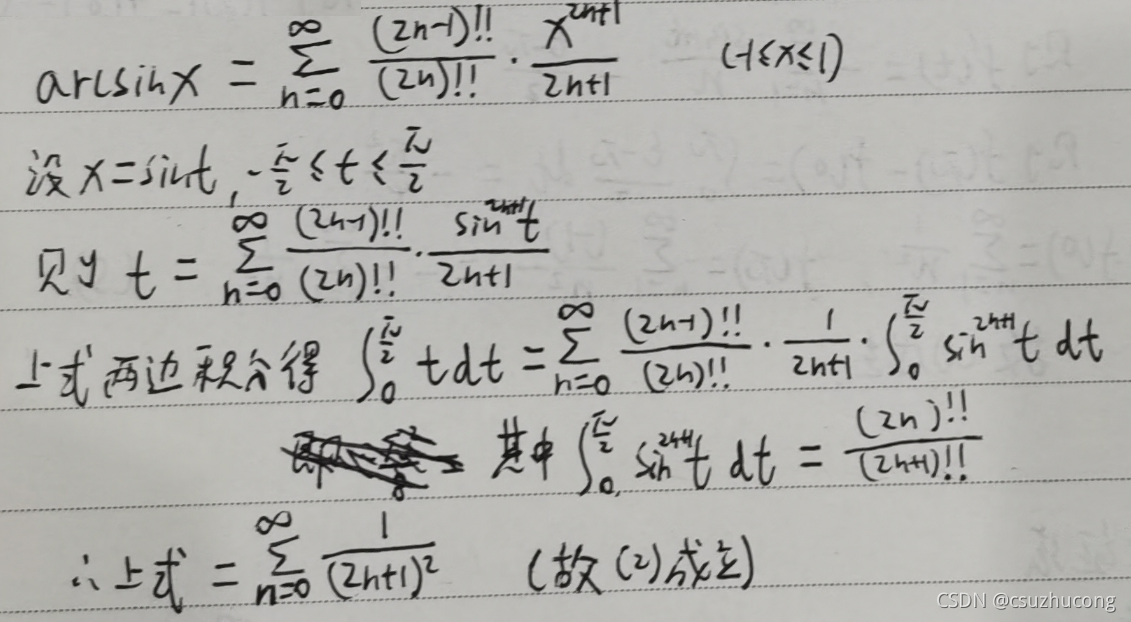 arcsinx = ∑_{n=0}^{∞} \frac{(2n-1)!!}{(2n)!!} · \frac{x^{2n+1}}{2n+1} (-1≤x≤1)
设 x=sint, -\frac{π}{2} ≤ t ≤ \frac{π}{2}
则 t = ∑_{n=0}^{∞} \frac{(2n-1)!!}{(2n)!!} · \frac{sin^{2n+1}t}{2n+1}
上式两边积分得 ∫_0^{\frac{π}{2}} t dt = ∑_{n=0}^{∞} \frac{(2n-1)!!}{(2n)!!} · \frac{1}{2n+1} · ∫_0^{\frac{π}{2}} sin^{2n+1}t dt
其中 ∫_0^{\frac{π}{2}} sin^{2n+1}t dt = \frac{(2n)!!}{(2n+1)!!}
∴上式 = ∑_{n=0}^{∞} \frac{1}{(2n+1)^2} (故(2)成立)
CSDN @csuzhucong